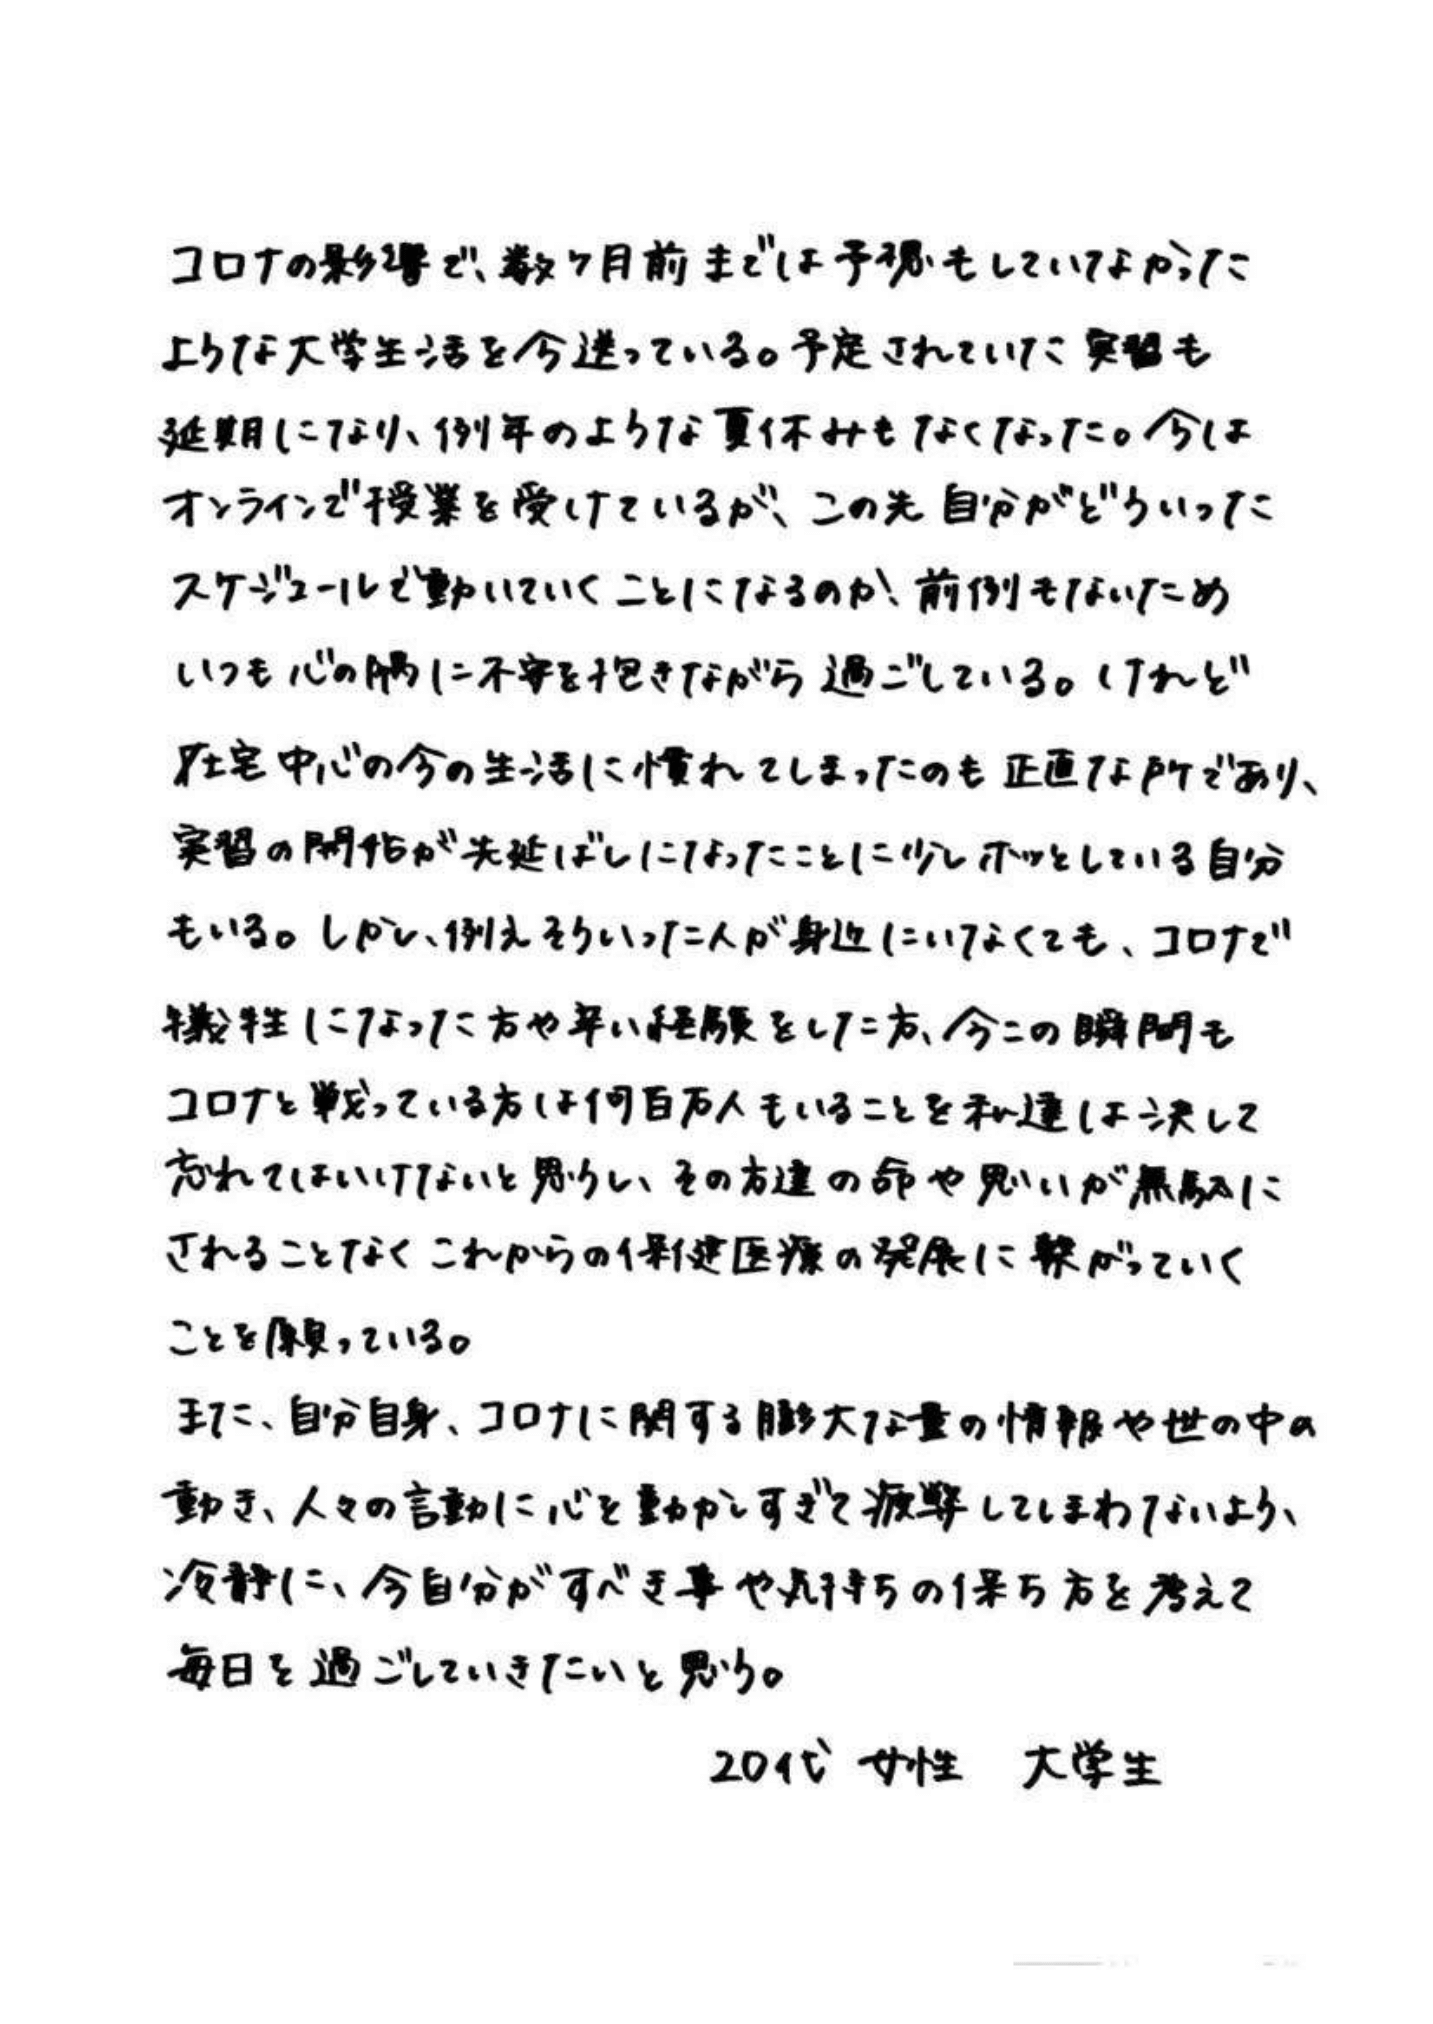 コロナの影響で、数ケ月前までは予想もしていなかった
ような大学生活を今送っている。予定されていた実習も
延期になり、例年のような夏休みもなくなった。今は
オンラインで授業を受けているが、この先自分がどういった
スケジュールで動いていくことになるのか、前例もないため
いつも心の隅に不安を抱きながら過ごしている。けれど
在宅中心の今の生活に慣れてしまったのも正直な所であり、
実習の開始が先延ばしになったことに少しホッとしている自分
もいる。しかし、例えそういった人が身近にいなくても、コロナで
犠牲になった方や辛い経験をした方、今この瞬間も
コロナと戦っている方は何百万人もいることを私達は決して
忘れてはいけないと思うし、その方達の命や思いが無駄に
されることなくこれからの保健医療の発展に繋がっていく
ことを願っている。
また、自分自身、コロナに関する膨大な量の情報や世の中の
動き、人々の言動に心を動かしすぎて疲弊してしまわないよう、
冷静に、今自分がすべき事や気持ちの保ち方を考えて
毎日を過ごしていきたいと思う。
20代 女性　大学生